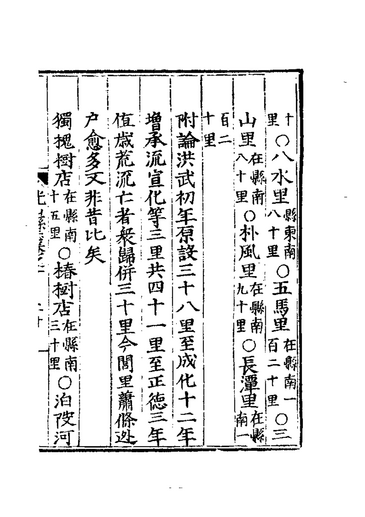 十里○八水里縣東南八十里○五馬里在縣南一百二十里○三
山里在縣南八十里○朴風里在縣南九十里○長潭里在縣南一
百二十里
附論洪武初年原設三十八里至成化十二年
增承流宣化等三里共四十一里至正德三年
值歲荒流亡者衆歸併三十里今閭里蕭條逃
户愈多又非昔比矣
獨槐樹店在縣南十五里○椿樹店在縣南三十里○泊陂河